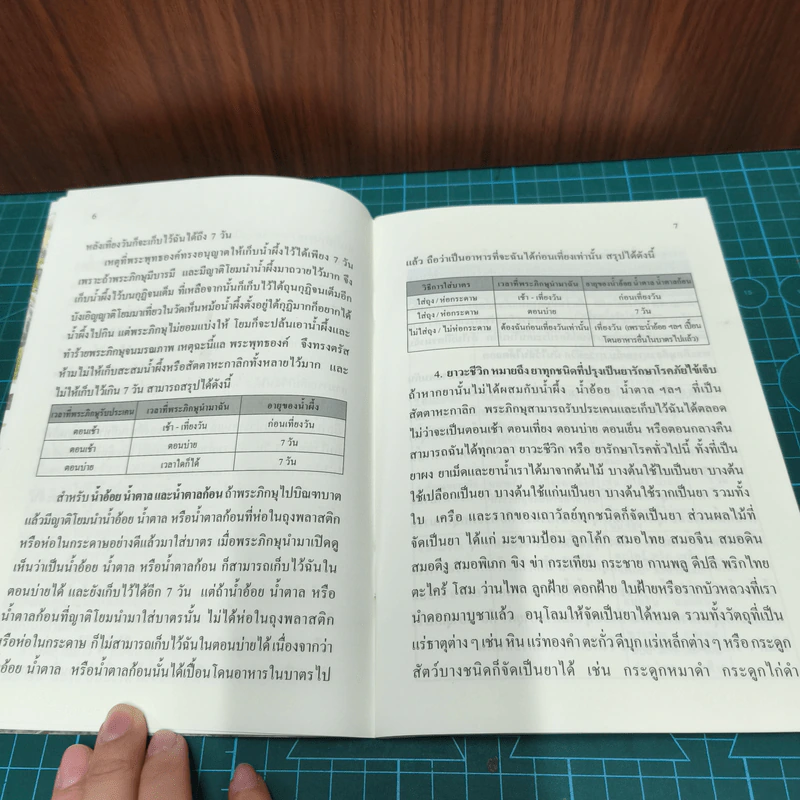 6
หลังเที่ยงวันก็จะเก็บไว้ฉันได้ถึง 7 วัน
เหตุที่พระพุทธองค์ทรงอนุญาตให้เก็บน้ำผึ้งไว้ได้เพียง 7 วัน
เพราะถ้าพระภิกษุมีบารมี และมีญาติโยมนำน้ำผึ้งมาถวายไว้มาก จึง
เก็บน้ำผึ้งไว้บนกุฏิจนเต็ม ที่เหลือจากนั้นก็เก็บไว้ใต้ถุนกุฏิจนเต็มอีก
บังเอิญญาติโยมมาเที่ยวในวัดเห็นหม้อน้ำผึ้งตั้งอยู่ใต้กุฏิมากก็อยากได้
น้ำผึ้งไปกิน แต่พระภิกษุไม่ยอมแบ่งให้ โยมก็จะปล้นเอาน้ำผึ้งและ
ทำร้ายพระภิกษุจนมรณภาพ เหตุฉะนี้แล พระพุทธองค์ จึงทรงตรัส
ห้ามไม่ให้เก็บสะสมน้ำผึ้งหรือสัตตาหะกาลิกทั้งหลายไว้มาก และ
ไม่ให้เก็บไว้เกิน 7 วัน สามารถสรุปได้ดังนี้
เวลาที่พระภิกษุรับประเคน เวลาที่พระภิกษุนำมาฉัน อายุของน้ำผึ้ง
ตอนเช้า เช้า - เที่ยงวัน ก่อนเที่ยงวัน
ตอนเช้า ตอนบ่าย 7 วัน
ตอนบ่าย เวลาใดก็ได้ 7 วัน
สำหรับ น้ำอ้อย น้ำตาล และน้ำตาลก้อน ถ้าพระภิกษุไปบิณฑบาต
แล้วมีญาติโยมนำน้ำอ้อย น้ำตาล หรือน้ำตาลก้อนที่ห่อในถุงพลาสติก
หรือห่อในกระดาษอย่างดีแล้วมาใส่บาตร เมื่อพระภิกษุนำมาเปิดดู
เห็นว่าเป็นน้ำอ้อย น้ำตาล หรือน้ำตาลก้อน ก็สามารถเก็บไว้ฉันใน
ตอนบ่ายได้ และยังเก็บไว้ได้อีก 7 วัน แต่ถ้าน้ำอ้อย น้ำตาล หรือ
น้ำตาลก้อนที่ญาติโยมนำมาใส่บาตรนั้น ไม่ได้ห่อในถุงพลาสติก
หรือห่อในกระดาษ ก็ไม่สามารถเก็บไว้ฉันในตอนบ่ายได้ เนื่องจากว่า
อ้อย น้ำตาล หรือน้ำตาลก้อนนั้นได้เปื้อนโดนอาหารในบาตรไป
7
แล้ว ถือว่าเป็นอาหารที่จะฉันได้ก่อนเที่ยงเท่านั้น สรุปได้ดังนี้
วิธีการใส่บาตร เวลาที่พระภิกษุนำมาฉัน อายุของน้ำอ้อย น้ำตาล น้ำตาลก้อน
ใส่ถุง / ห่อกระดาษ เช้า - เที่ยงวัน ก่อนเที่ยงวัน
ใส่ถุง / ห่อกระดาษ ตอนบ่าย 7 วัน
ไม่ใส่ถุง / ไม่ห่อกระดาษ ต้องฉันก่อนเที่ยงวันเท่านั้น เที่ยงวัน (เพราะน้ำอ้อย ฯลฯ เปื้อน
โดนอาหารอื่นในบาตรไปแล้ว)
4. ยาวะชีวิก หมายถึง ยาทุกชนิดที่ปรุงเป็นยารักษาโรคภัยไข้เจ็บ
ถ้าหากยานั้นไม่ได้ผสมกับน้ำผึ้ง น้ำอ้อย น้ำตาล ฯลฯ ที่เป็น
สัตตาหะกาลิก พระภิกษุสามารถรับประเคนและเก็บไว้ฉันได้ตลอด
ไม่ว่าจะเป็นตอนเช้า ตอนเที่ยง ตอนบ่าย ตอนเย็น หรือตอนกลางคืน
สามารถฉันได้ทุกเวลา ยาวะชีวิก หรือ ยารักษาโรคทั่วไปนี้ ทั้งที่เป็น
ยาผง ยาเม็ดและยาน้ำเราได้มาจากต้นไม้ บางต้นใช้ใบเป็นยา บางต้น
ใช้เปลือกเป็นยา บางต้นใช้แก่นเป็นยา บางต้นใช้รากเป็นยา รวมทั้ง
ใบ เครือ และรากของเถาวัลย์ทุกชนิดก็จัดเป็นยา ส่วนผลไม้ที่
จัดเป็นยา ได้แก่ มะขามป้อม ลูกโค้ก สมอไทย สมอจีน สมอดิน
สมอดีงู สมอพิเภก ขิง ข่า กระเทียม กระชาย กานพลู ดีปลี พริกไทย
ตะไคร้ โสม ว่านไพล ลูกฝ้าย ดอกฝ้าย ใบฝ้ายหรือรากบัวหลวงที่เรา
นำดอกมาบูชาแล้ว อนุโลมให้จัดเป็นยาได้หมด รวมทั้งวัตถุที่เป็น
แร่ธาตุต่าง ๆ เช่น หิน แร่ทองคำ ตะกั่ว ดีบุก แร่เหล็กต่าง ๆ หรือ กระดูก
สัตว์บางชนิดก็จัดเป็นยาได้ เช่น กระดูกหมาดำ กระดูกไก่ดำ